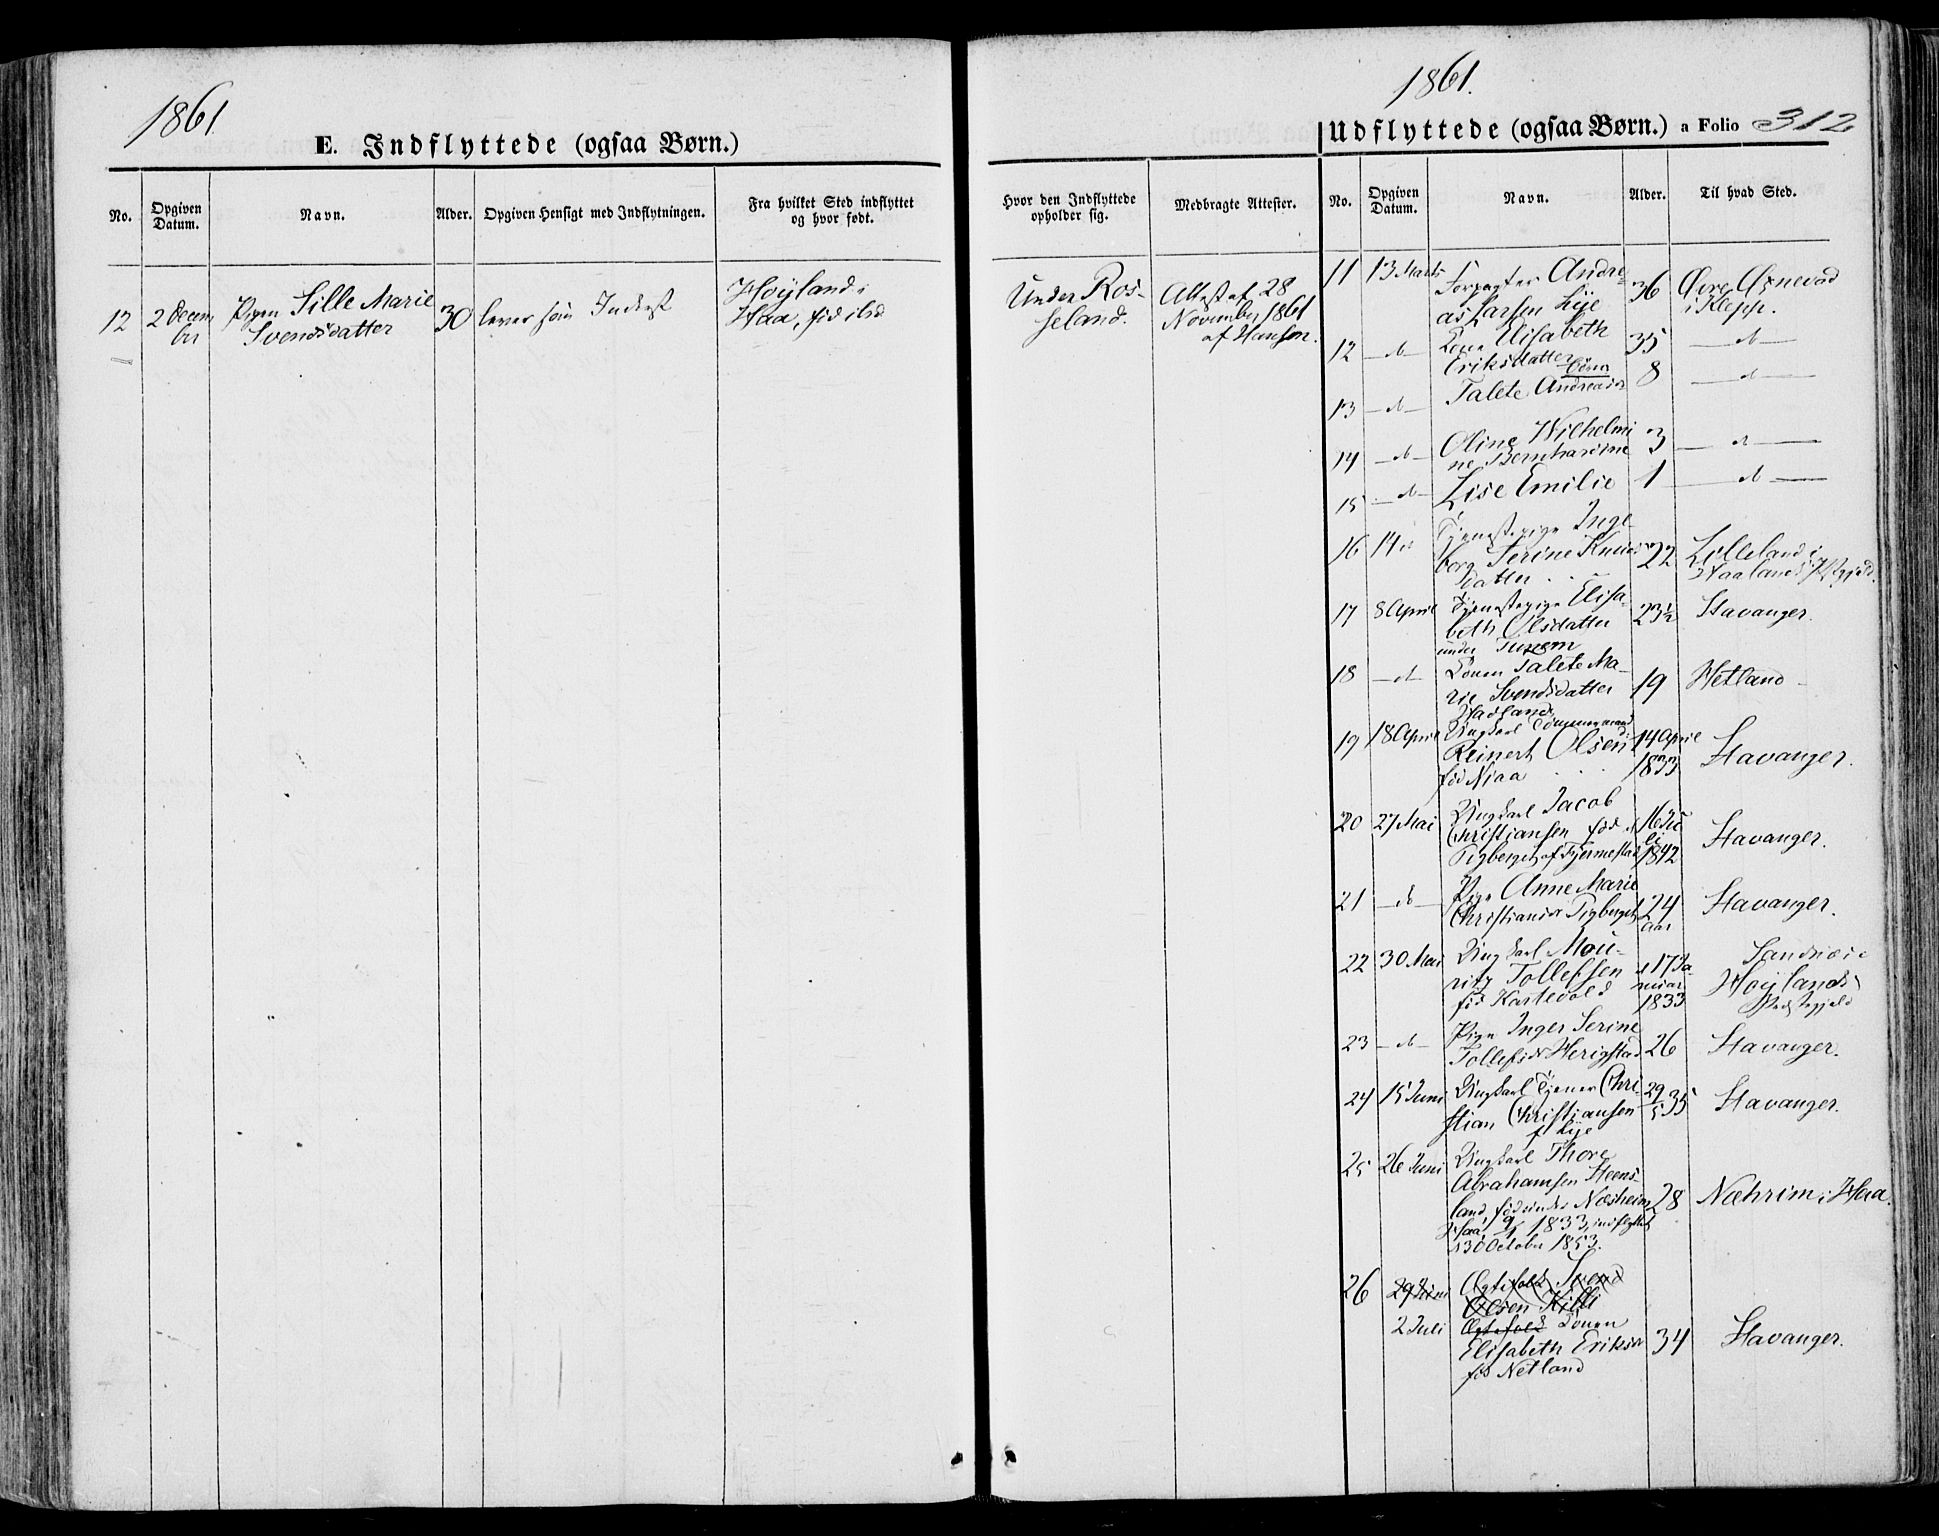 1861
E. Indflyttede (ogsaa Børn.)
No.
Opgiven Datum.
Navn.
Alder.
Opgiven Hensigt med Indflytningen.
Fra hvilket Sted indflyttet og hvor født.
12
2 Decem
ber
Pigen Sille Marie
Svendsdatter
30
lever som Inderst
Høyland i
Haa, fød ibd
1861.
Udflyttede (ogsaa Børn.) a Folio 312
Hvor den Indflyttede opholder sig.
Medbragte Attester.
No.
Opgiven Datum.
Navn.
Alder.
Til hvad Sted.
Under Ros-
seland.
Attest af 28
November 1861
af Hansen.
11 13 Marts Forpagter Andre-
as Larsen Lye 36 Øvre Ørnevad
i Klepp.
12 —d— Kone Elisabeth
Eriksdatter 35 —d—
Børn
13 —d— Talete Andreasdr 8 —d—
14 —d— Oline Wilhelmi
ne Bernhardine 3 —d—
15 —d— Lise Emilie 1 —d—
16 14 d Tjenestepige Inge
borg Serine Knuds
datter 22 Lilleland i
Haalands Pgjeld.
17 8 April Tjenestepige Elisa-
beth Olsdatter
under Tunem 23½ Stavanger.
18 —d— Konen Talete Ma-
rie Svendsdatter
Hadland 19 Hetland
19 18 April Ungkarl Tømmermand
Reinert Olsen
fød Njaa 14 April
1833 Stavanger.
20 27 Mai Ungkarl Jacob
Christiansen fød
Tigberget af Fjermestad 16 Ju
li
1842 Stavanger.
21 —d— Pige Anne Marie
Christiansdr Tigberget 24
Aar Stavanger.
22 30 Mai Ungkarl Mou-
ritz Tollefsen
fød Kartevold d 17 Ja-
nuar
1833 Sandnæs i
Høylands
Præstegjeld
23 —d— Pige Inger Serine
Tollefsdr Herigstad 26 Stavanger.
24 15 Juni Ungkarl Tjener Chri-
stian Christiansen
f Lye 29/5 35 Stavanger.
25 26 Juni Ungkarl Thore
Abrahamsen Steens-
land, fød under Næsheim
Haa, 1833, indflyttet
d 30 October 1853. 28 Næhrim i Haa.
26 29 Juni Ægtefolk Svend
Olsen Killi
2 Juli Ægtefolk Konen
Elisabeth Eriksdr
fød Netland 34 Stavanger.